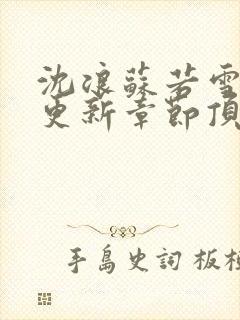 沈浪蘇若雪
更新章節頂
手島史詞 板板